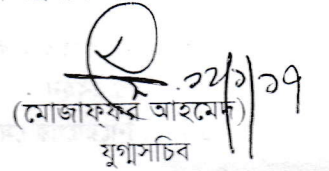 ১২/১/১৭
(মোজাফ্ফর আহমেদ)
যুগ্মসচিব